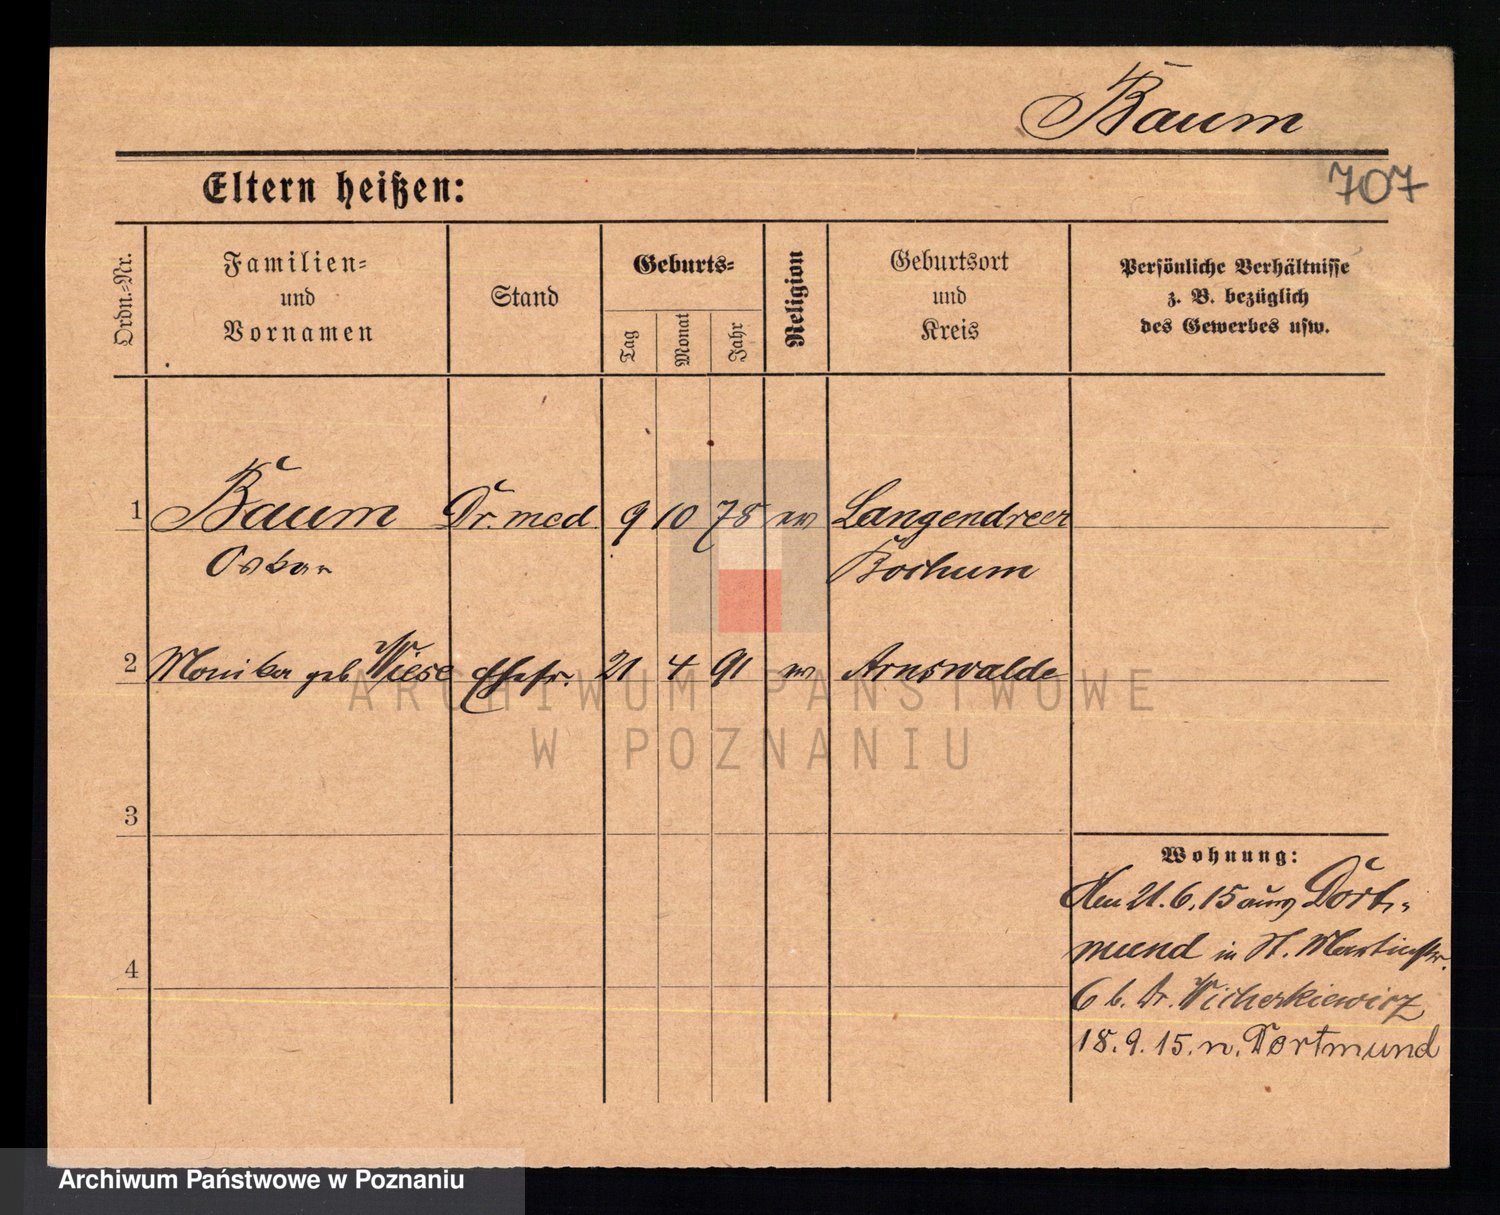 Baum
707
Eltern heißen:
Ordn.-Nr.
Familien-
und
Vornamen
Stand
Geburts-
Tag
Monat
Jahr
Religion
Geburtsort
und
Kreis
Persönliche Verhältnisse
z. B. bezüglich
des Gewerbes usw.
1 Baum Dr. med. 9 10 78 ev Langendreer
Oskar Bochum
2 Monika geb Wiese Ehefr. 21 4 91 ev Arnswalde
3
4
Wohnung:
Am 21.6.15 aus Dort-
mund in St. Martinstr.
6 b. Dr. Wicherkiewicz
18.9.15. n. Dortmund
ARCHIWUM PAŃSTWOWE
W POZNANIU
Archiwum Państwowe w Poznaniu